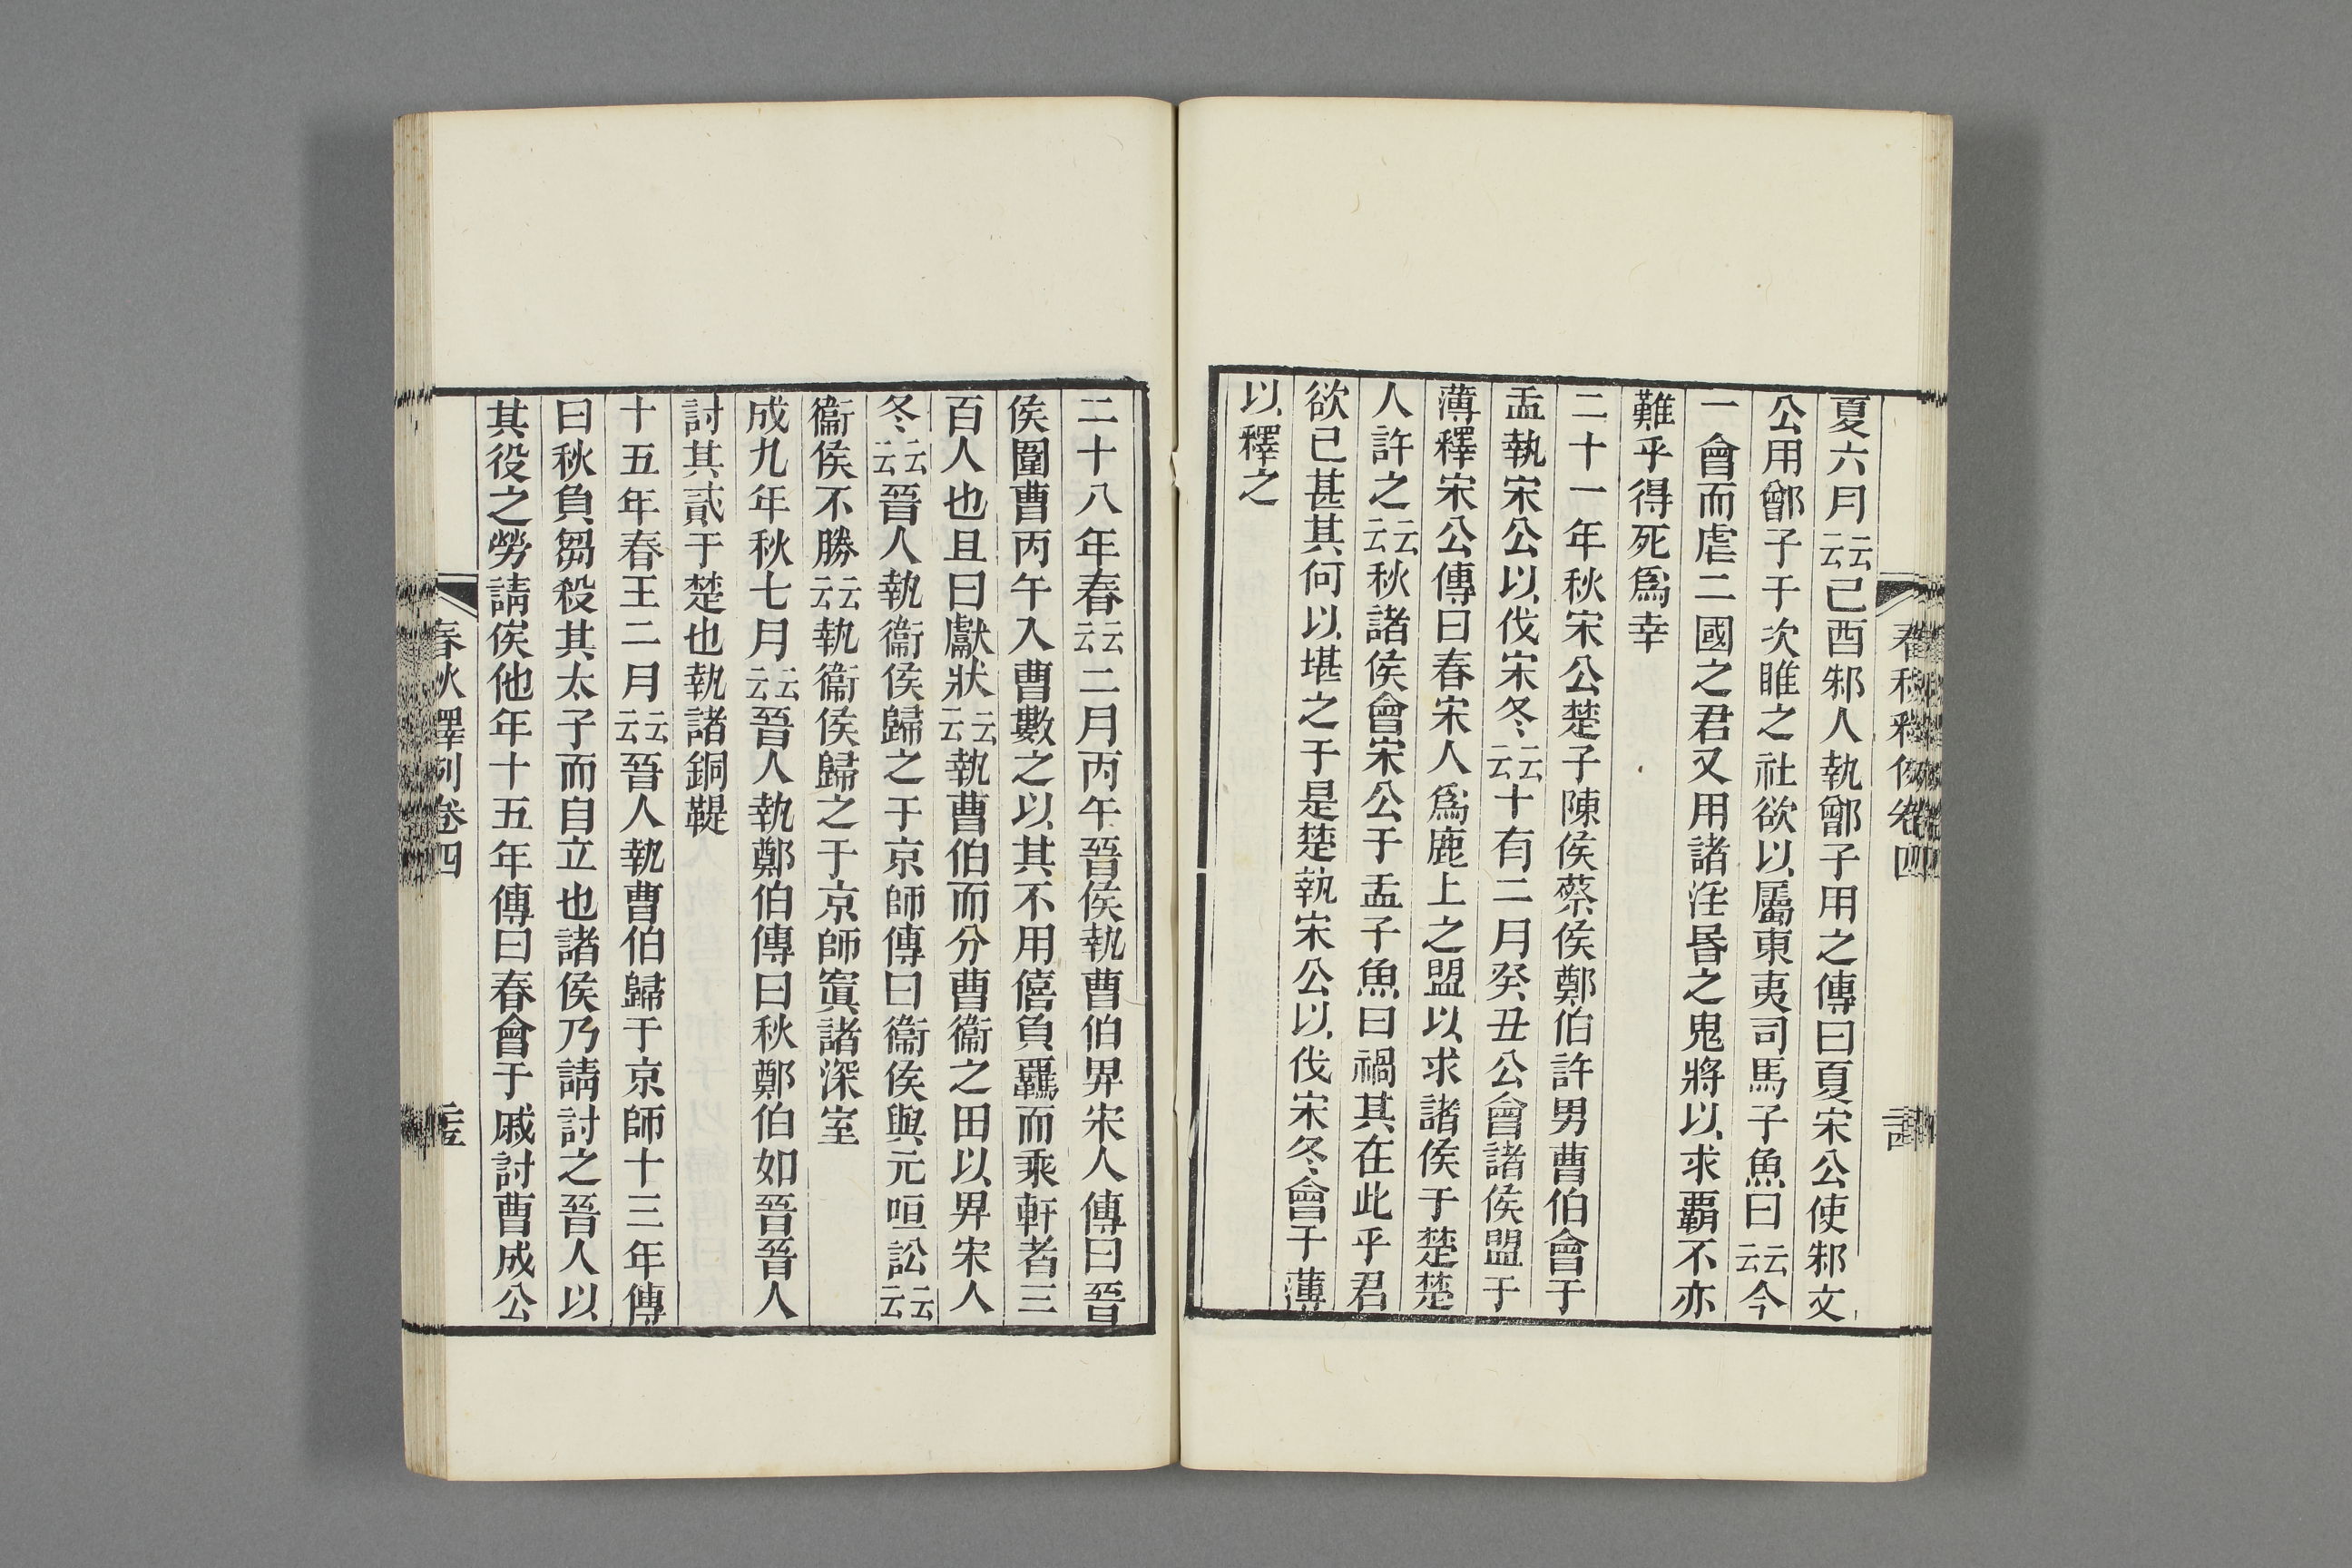 夏六月云云己酉邾人執鄫子用之傳曰夏宋公使邾文
公用鄫子于次睢之社欲以屬東夷司馬子魚曰云云今
一會而虐二國之君又用諸淫昬之鬼將以求霸不亦
難乎得死爲幸
二十一年秋宋公楚子陳侯蔡侯鄭伯許男曹伯會于
盂執宋公以伐宋冬云云十有二月癸丑公會諸侯盟于
薄釋宋公傳曰春宋人爲鹿上之盟以求諸侯于楚楚
人許之云云秋諸侯會宋公于盂子魚曰禍其在此乎君
欲已甚其何以堪之于是楚執宋公以伐宋冬會于薄
以釋之
二十八年春云云二月丙午晉侯執曹伯畀宋人傳曰晉
侯圍曹丙午入曹數之以其不用僖負羈而乘軒者三
百人也且曰獻狀云云執曹伯而分曹衞之田以畀宋人
冬云云晉人執衞侯歸之于京師傳曰衞侯與元咺訟云云
衞侯不勝云云執衞侯歸之于京師寘諸深室
成九年秋七月云云晉人執鄭伯傳曰秋鄭伯如晉晉人
討其貳于楚也執諸銅鞮
十五年春王二月云云晉人執曹伯歸于京師十三年傳
曰秋負芻殺其太子而自立也諸侯乃請討之晉人以
其役之勞請俟他年十五年傳曰春會于戚討曹成公
春秋釋例卷四